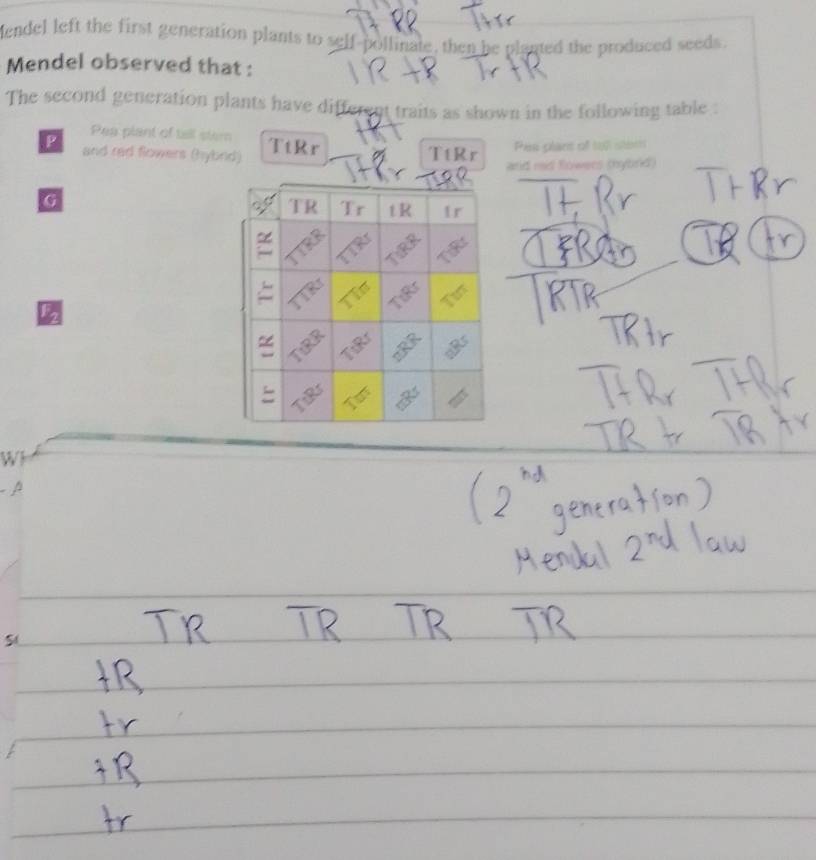 Mendel left the first generation plants to self-pollinate, then he planted the produced seeds.
Tt RR Ttrr
Mendel observed that :
tR Tr tR
The second generation plants have different traits as shown in the following table :
P
Pea plant of tall stem
and red flowers (hybrid)
TtRr
TtRr
Pea plant of tall stem
and red flowers (hybrid)
TtRr
Tt Rr TtRr
G
♂ TR Tr tR tr
TR TTRR TTRr TtRR TtRr
TR tr
Tr TTRr TTrr TtRr Ttrr
TRTR
F2
tR TtRR TtRr ttRR ttRr
TRtr
tr TtRr Ttrr ttRr ttrr
TtRr TtRr
TR tr TR tr
(2nd generation)
Mendal 2nd law
TR TR TR TR
tR
tr
tR
tr